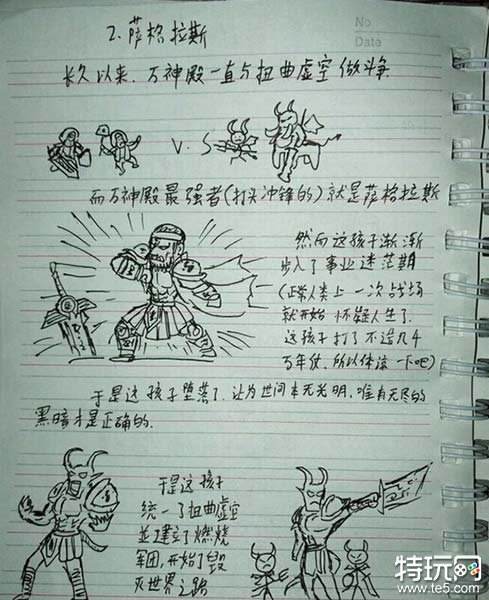 No
Date
2.萨格拉斯
长久以来,万神殿一直与扭曲虚空做斗争
V.S
而万神殿最强者(打头冲锋的)就是萨格拉斯
然而这孩子渐渐
步入了事业迷茫期
(正常人类上一次战场
就开始怀疑人生了.
这孩子打了不造几千
万年仗,所以体谅一下吧)
于是这孩子堕落了,认为世间本无光明,唯有无尽的
黑暗才是正确的.
于是这孩子
统一了扭曲虚空
並建立了燃烧
军团,开始了毁
灭世界之路
特玩网
www.te5.com